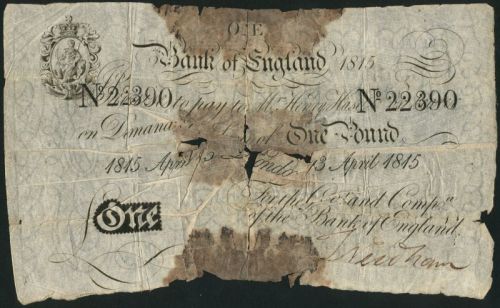 ONE
Bank of England 1815
I P
No 22390 to pay to Mr Henry Hase No 22390
on Demand of One Pound
1815 April 13 London 13 April 1815
For the Gov. and Compa.
One of the Bank of England